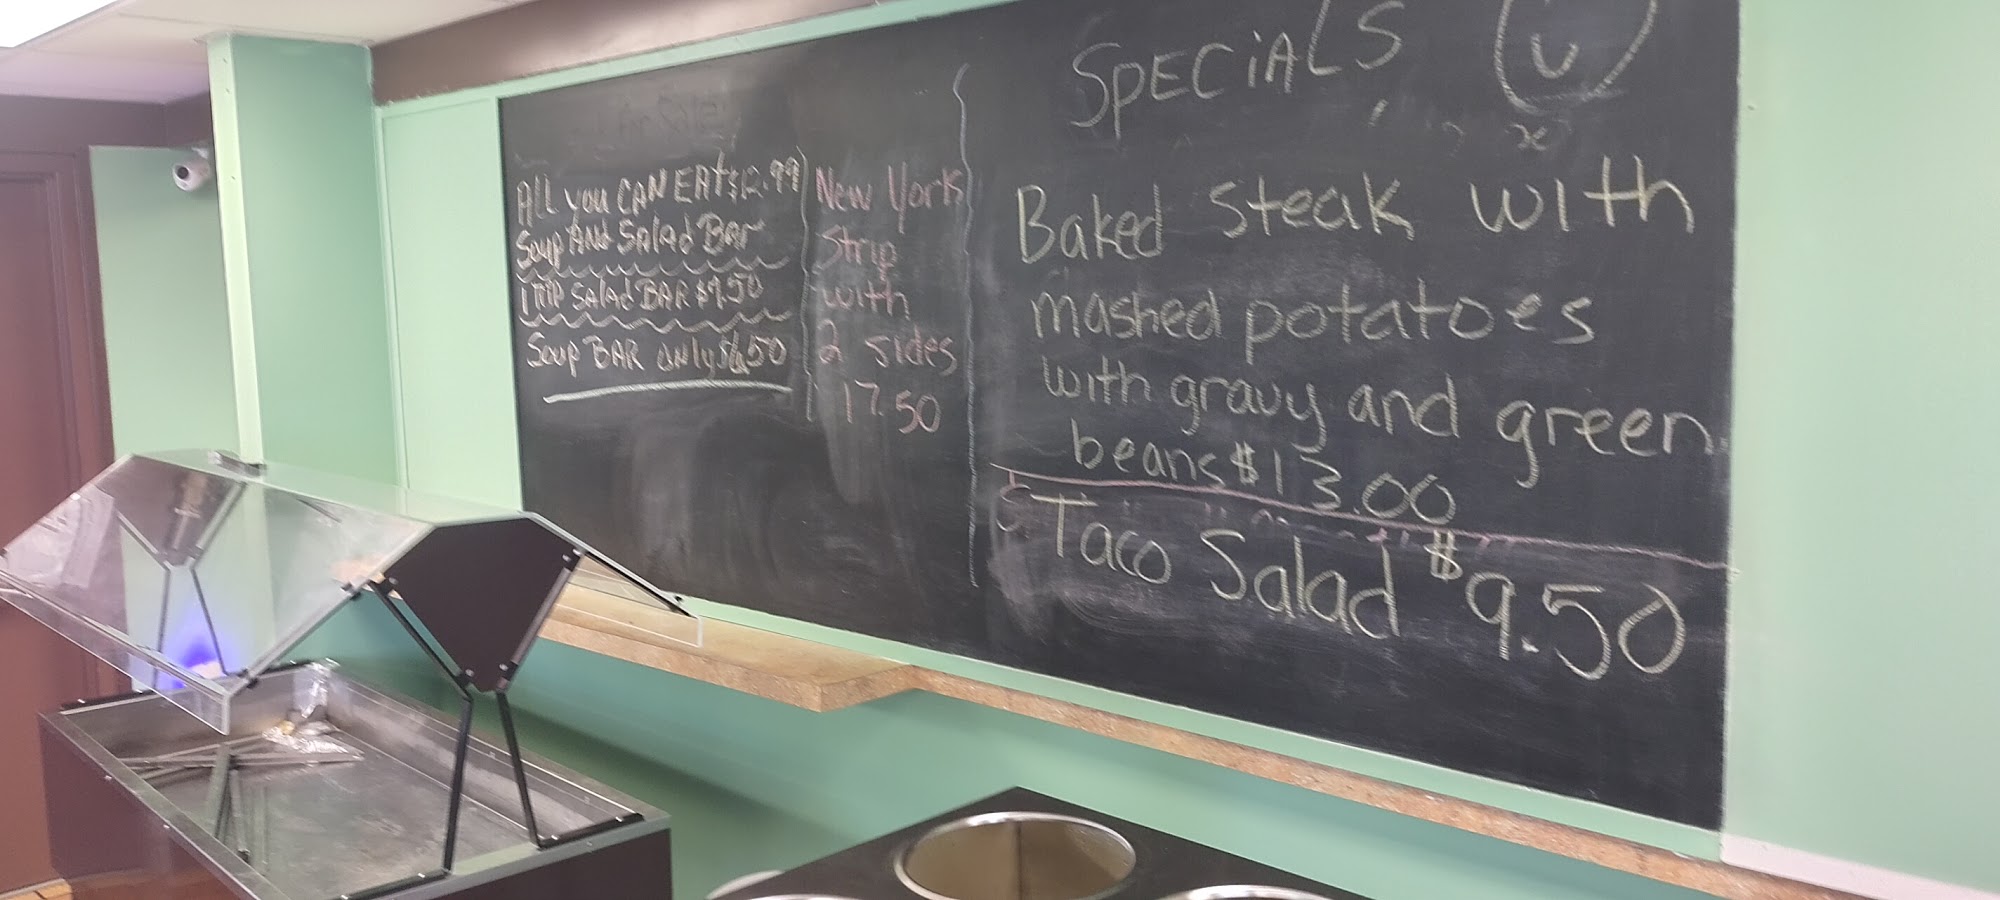 For Sale
ALL you CAN EAT $12.99
Soup AND Salad BAR
1 TRIP Salad BAR $9.50
Soup BAR only $6.50
New York
Strip
with
2 sides
17.50
SPECiALS
Baked steak with
mashed potatoes
with gravy and green
beans $13.00
Taco Salad $9.50